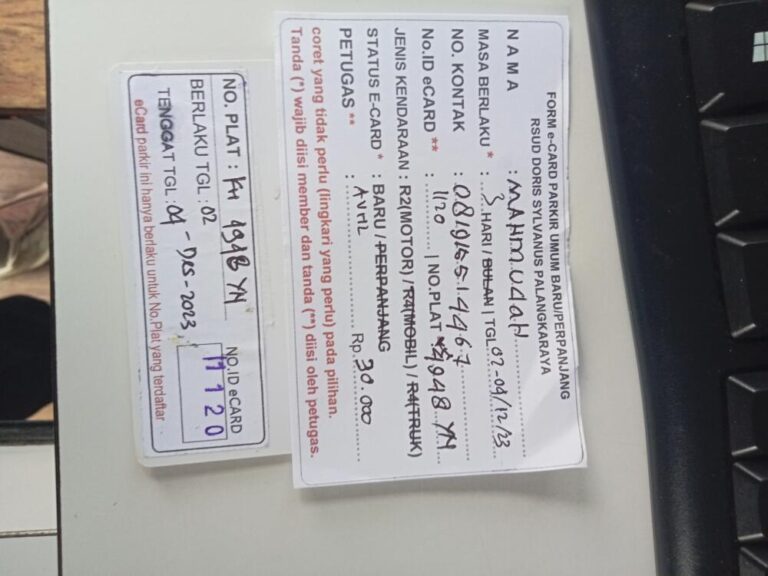 FORM e-CARD PARKIR UMUM BARU/PERPANJANG
RSUD DORIS SYLVANUS PALANGKARAYA
NAMA : MAHMUDAH
MASA BERLAKU * : 3 HARI / BULAN | TGL 02-04/12/23
NO. KONTAK :
No.ID eCARD ** : 1120 | NO.PLAT 4948 YN
JENIS KENDARAAN : R2(MOTOR) / R4(MOBIL) / R4(TRUK)
STATUS E-CARD * : BARU / PERPANJANG
PETUGAS ** : Rp. 30.000
coret yang tidak perlu (lingkari yang perlu) pada pilihan.
Tanda (*) wajib diisi member dan tanda (**) diisi oleh petugas.
NO. PLAT : KH 4948 YN
NO.ID eCARD
BERLAKU TGL : 02
11120
TENGGAT TGL : 04 - DES - 2023
eCard parkir ini hanya berlaku untuk No.Plat yang terdaftar